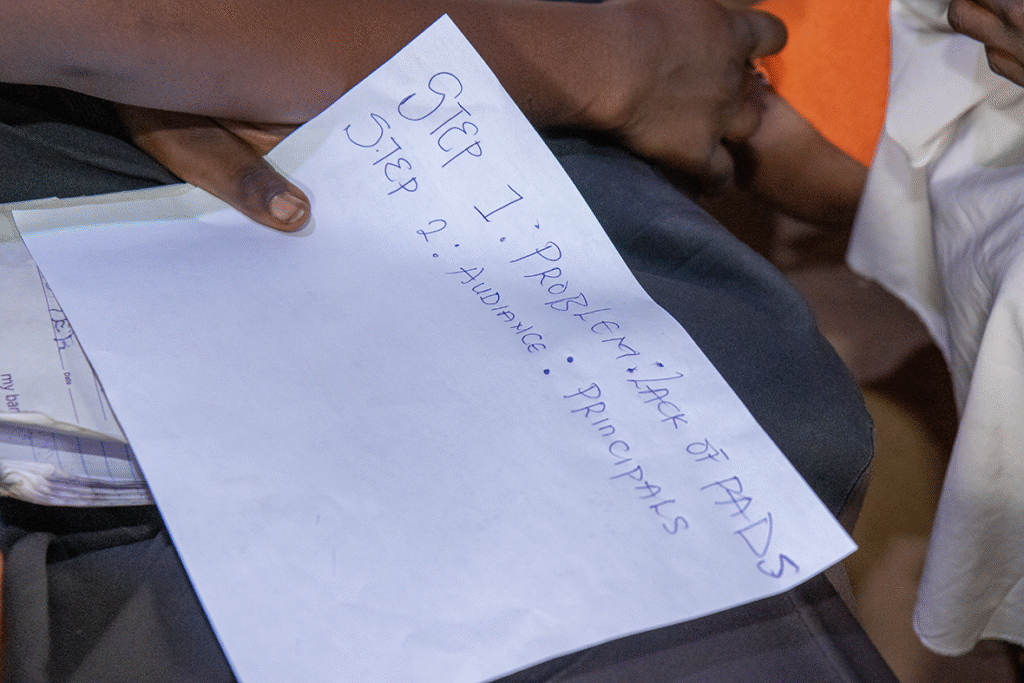 STEP 1: PROBLEM: LACK OF PADS
STEP 2: AUDIANCE: PRINCIPALS
my bar
Date